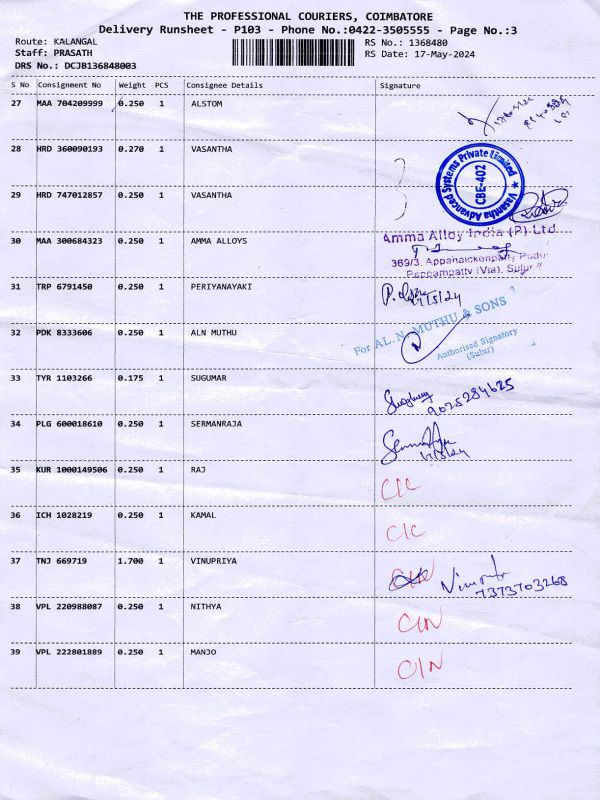 THE PROFESSIONAL COURIERS, COIMBATORE
Delivery Runsheet - P103 - Phone No.:0422-3505555 - Page No.:3
Route: KALANGAL RS No.: 1368480
Staff: PRASATH RS Date: 17-May-2024
DRS No.: DCJB136848003
S No Consignment No Weight PCS Consignee Details Signature
27 MAA 704209999 0.250 1 ALSTOM
28 HRD 360090193 0.270 1 VASANTHA
Vasantha Advanced Systems Private Limited
CBE-402
29 HRD 747012857 0.250 1 VASANTHA
30 MAA 300684323 0.250 1 AMMA ALLOYS
Amma Alloy India (P) Ltd.
369/3, Appanaickenpatty Pudur
Pappampatty (Via), Sulur
31 TRP 6791450 0.250 1 PERIYANAYAKI
17/5/24
32 PDK 8333606 0.250 1 ALN MUTHU
For AL. N. MUTHU & SONS
Authorised Signatory
(Sulur)
33 TYR 1103266 0.175 1 SUGUMAR
9025284625
34 PLG 600018610 0.250 1 SERMANRAJA
17/5/24
35 KUR 1000149506 0.250 1 RAJ C/C
36 ICH 1028219 0.250 1 KAMAL C/C
37 TNJ 669719 1.700 1 VINUPRIYA
7373703268
38 VPL 220988087 0.250 1 NITHYA C/N
39 VPL 222801889 0.250 1 MANJO C/N